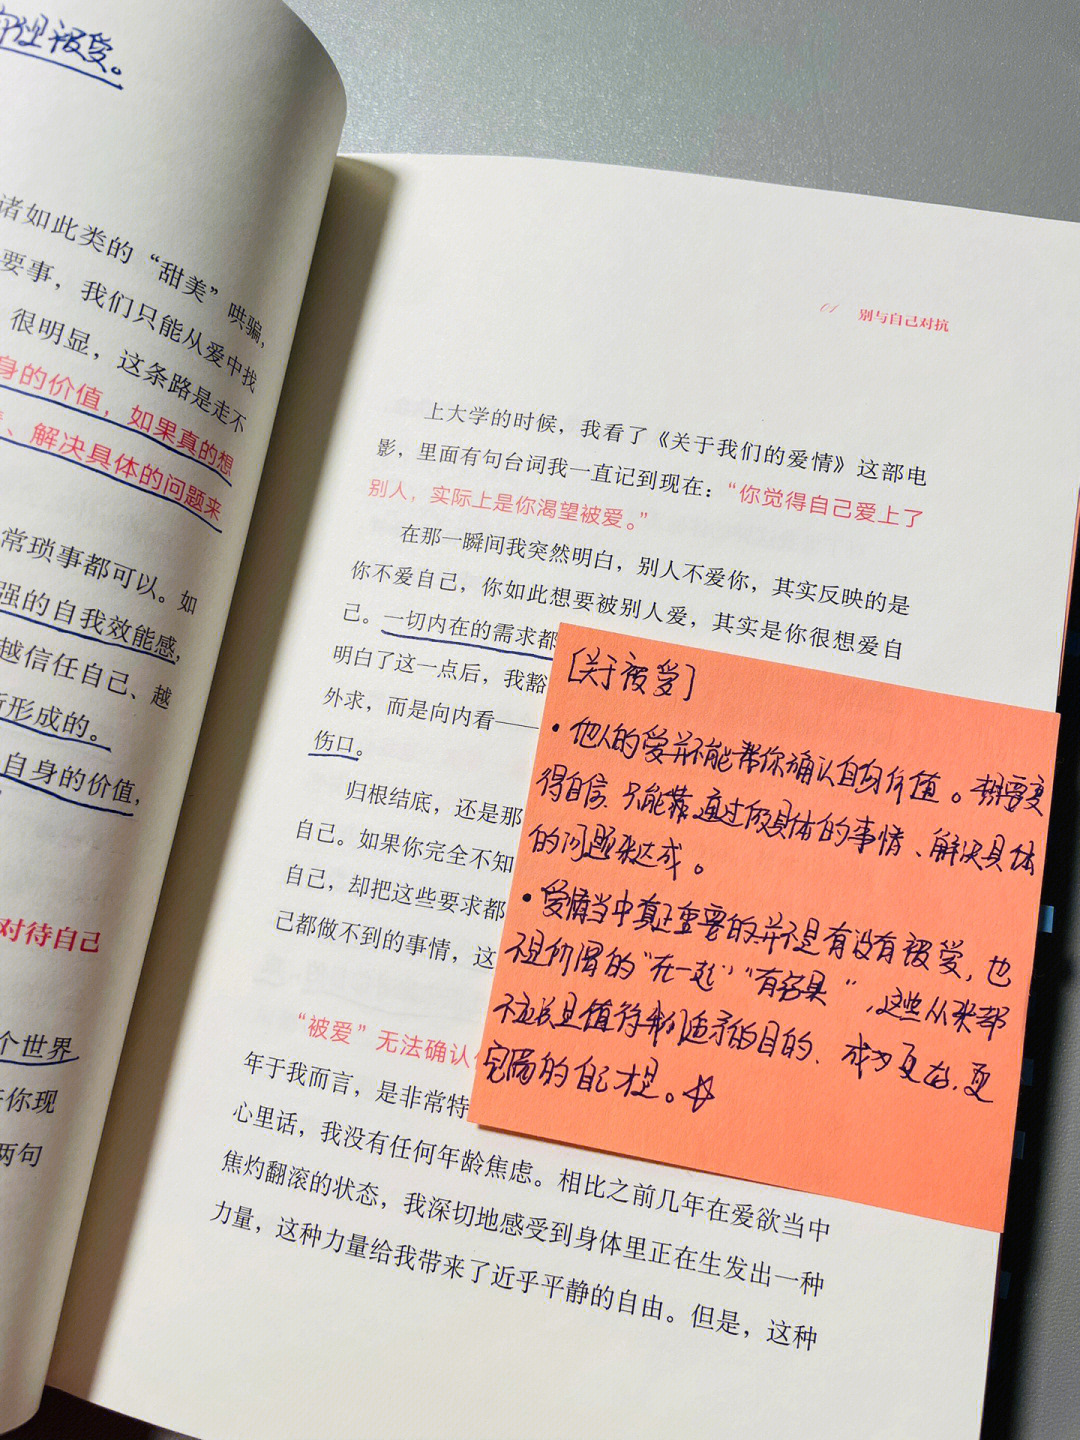 被爱。
诸如此类的“甜美”哄骗，
要事，我们只能从爱中找
很明显，这条路是走不
身的价值，如果真的想
、解决具体的问题来
常琐事都可以。如
强的自我效能感，
越信任自己、越
所形成的。
自身的价值，
对待自己
个世界
你现
两句
01 别与自己对抗
上大学的时候，我看了《关于我们的爱情》这部电
影，里面有句台词我一直记到现在：“你觉得自己爱上了
别人，实际上是你渴望被爱。”
在那一瞬间我突然明白，别人不爱你，其实反映的是
你不爱自己，你如此想要被别人爱，其实是你很想爱自
己。一切内在的需求都
明白了这一点后，我豁
外求，而是向内看——
伤口。
归根结底，还是那
自己。如果你完全不知
自己，却把这些要求都
己都做不到的事情，这
“被爱”无法确认
年于我而言，是非常特
心里话，我没有任何年龄焦虑。相比之前几年在爱欲当中
焦灼翻滚的状态，我深切地感受到身体里正在生发出一种
力量，这种力量给我带来了近乎平静的自由。但是，这种
［关于被爱］
• 他人的爱并不能帮你确认自身价值。想要变
得自信，只能靠通过做具体的事情、解决具体
的问题来达成。
• 爱情当中真正重要的并不是有没有被爱，也
不是所谓的“在一起”“有结果”，这些从来都
不应该是值得我们追求的目的，成为更好、更
完满的自己才是。☆